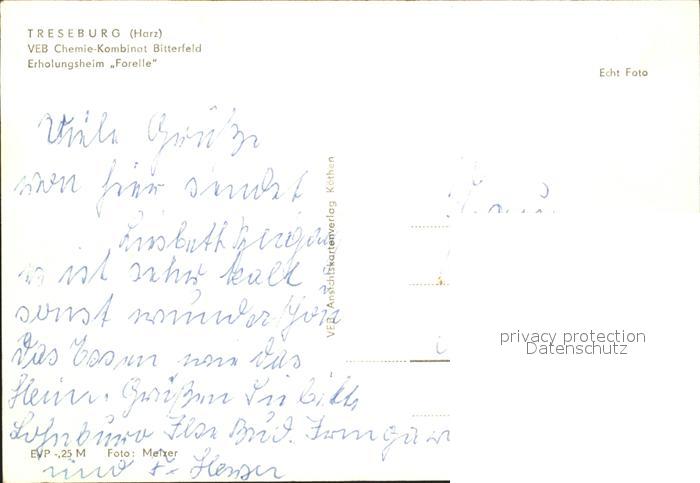 TRESEBURG (Harz)
VEB Chemie-Kombinat Bitterfeld
Erholungsheim „Forelle"
Echt Foto
Viele Grüße
von hier sendet
Liesbeth
es ist sehr kalt
sonst wunderschön
das Essen wie das
Heim. Grüßen Sie bitte
Ilse
und
VEB Ansichtskartenverlag Köthen
privacy protection
Datenschutz
EVP -,25 M Foto: Melzer